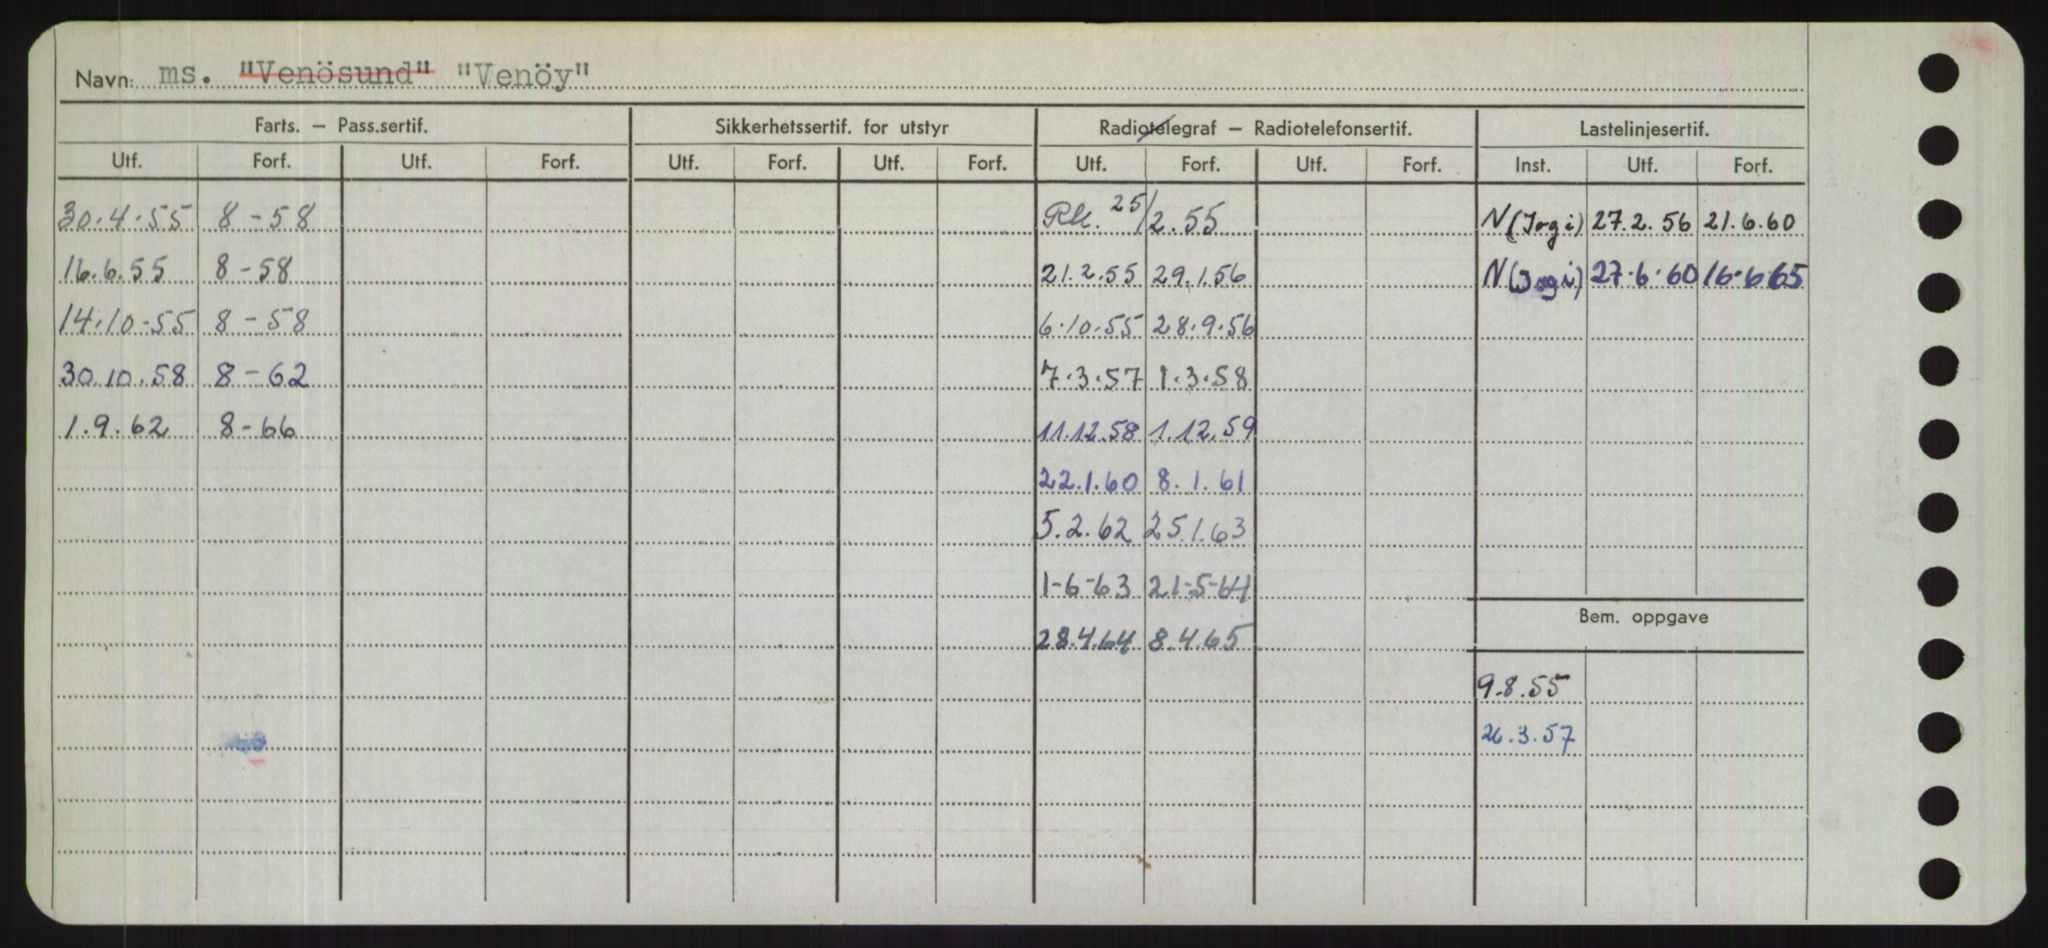 Navn: ms. "Venösund" "Venöy"
Farts. – Pass.sertif. Sikkerhetssertif. for utstyr Radiotelegraf – Radiotelefonsertif. Lastelinjesertif.
Utf. Forf. Utf. Forf. Utf. Forf. Utf. Forf. Utf. Forf. Utf. Forf. Inst. Utf. Forf.
30.4.55 8-58 25/2.55 N 27.2.56 21.6.60
16.6.55 8-58 21.2.55 29.1.56 N 27.6.60 16.6.65
14.10-55 8-58 6.10.55 28.9.56
30.10.58 8-62 7.3.57 1.3.58
1.9.62 8-66 11.12.58 1.12.59
22.1.60 8.1.61
5.2.62 25.1.63
1-6-63 21-5-64
Bem. oppgave
28.4.64 8.4.65
9.8.55
26.3.57